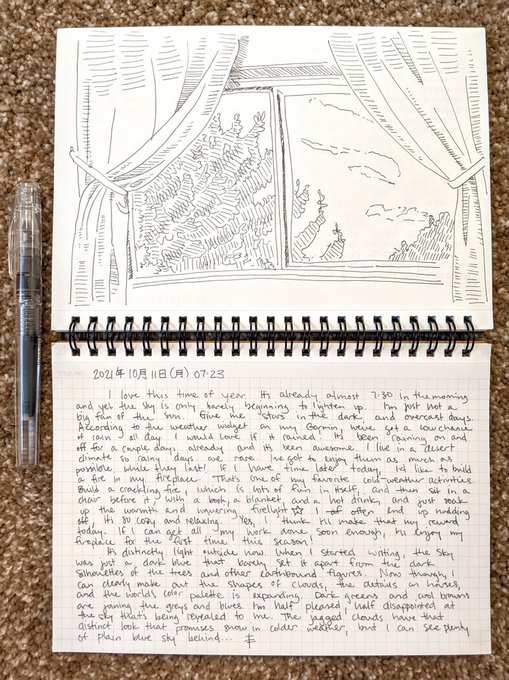 2021年 10月 11日 (月) 07:23
I love this time of year. It's already almost 7:30 in the morning
and yet the sky is only barely beginning to lighten up. I'm just not a
big fan of the sun. Give me stars in the dark and overcast days.
According to the weather widget on my Garmin, we've got a low chance
of rain all day. I would love if it rained. It's been raining on and
off for a couple days already and it's been awesome. I live in a desert
climate so rainy days are rare. I've got to enjoy them as much as
possible while they last! If I have time later today, I'd like to build
a fire in my fireplace. That's one of my favorite cold-weather activities.
Build a crackling fire, which is lots of fun in itself, and then sit in a
chair before it with a book, a blanket, and a hot drink, and just soak
up the warmth and wavering firelight ☆ I often end up nodding
off, it's so cozy and relaxing. Yes, I think I'll make that my reward
today. If I can get all my work done soon enough, I'll enjoy my
fireplace for the first time this season!
It's distinctly light outside now. When I started writing, the sky
was just a dark blue that barely set it apart from the dark
silhouettes of the trees and other earthbound figures. Now though, I
can clearly make out the shapes of clouds, the details on houses,
and the world's color palette is expanding. Dark greens and cool browns
are joining the greys and blues. I'm half pleased, half disappointed at
the sky that's being revealed to me. The jagged clouds have that
distinct look that promises snow in colder weather, but I can see plenty
of plain blue sky behind...